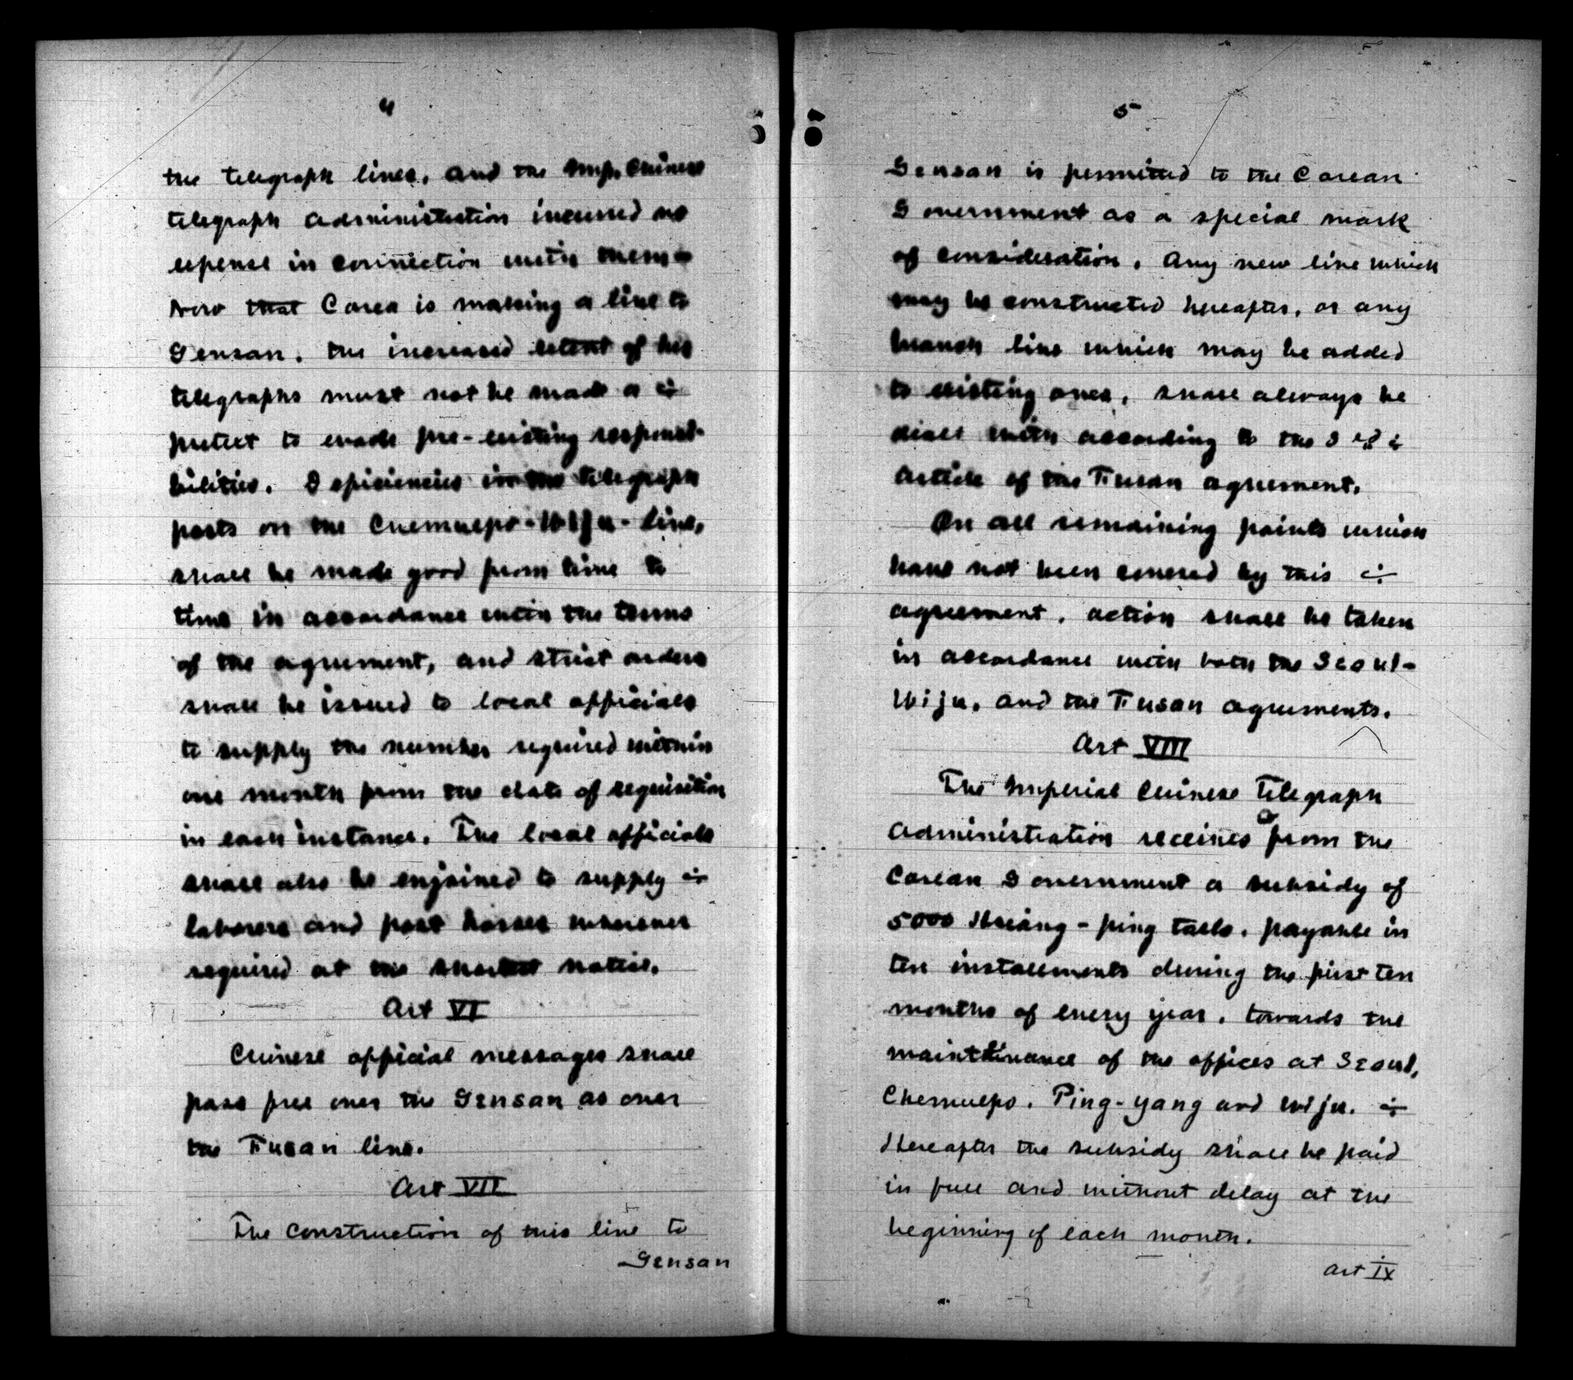 4
the telegraph lines, and the Imp. Chinese
telegraph administration incurred no
expense in connection with them
Now that Corea is making a line to
Gensan, the increased extent of her
telegraphs must not be made a
pretext to evade pre-existing responsi-
bilities. Deficiencies in the telegraph
posts on the Chemulpo-Wiju-line,
shall be made good from time to
time in accordance with the terms
of the agreement, and strict orders
shall be issued to local officials
to supply the number required within
one month from the date of requisition
in each instance. The local officials
shall also be enjoined to supply
laborers and post horses whenever
required at the shortest notice.
Art VI
Chinese official messages shall
pass free over the Gensan as over
the Fusan line.
Art VII
The construction of this line to
Gensan
5
Gensan is permitted to the Corean
Government as a special mark
of consideration. Any new line which
may be constructed hereafter, or any
branch line which may be added
to existing ones, shall always be
dealt with according to the 3rd
article of the Fusan agreement.
On all remaining points which
have not been covered by this
agreement, action shall be taken
in accordance with both the Seoul-
Wiju, and the Fusan agreements.
Art VIII
The Imperial Chinese Telegraph
Administration receives from the
Corean Government a subsidy of
5000 Hsiang-ping taels, payable in
ten installments during the first ten
months of every year, towards the
maintainance of the offices at Seoul,
Chemulpo, Ping-yang and Wiju.
Hereafter the subsidy shall be paid
in full and without delay at the
beginning of each month.
Art IX